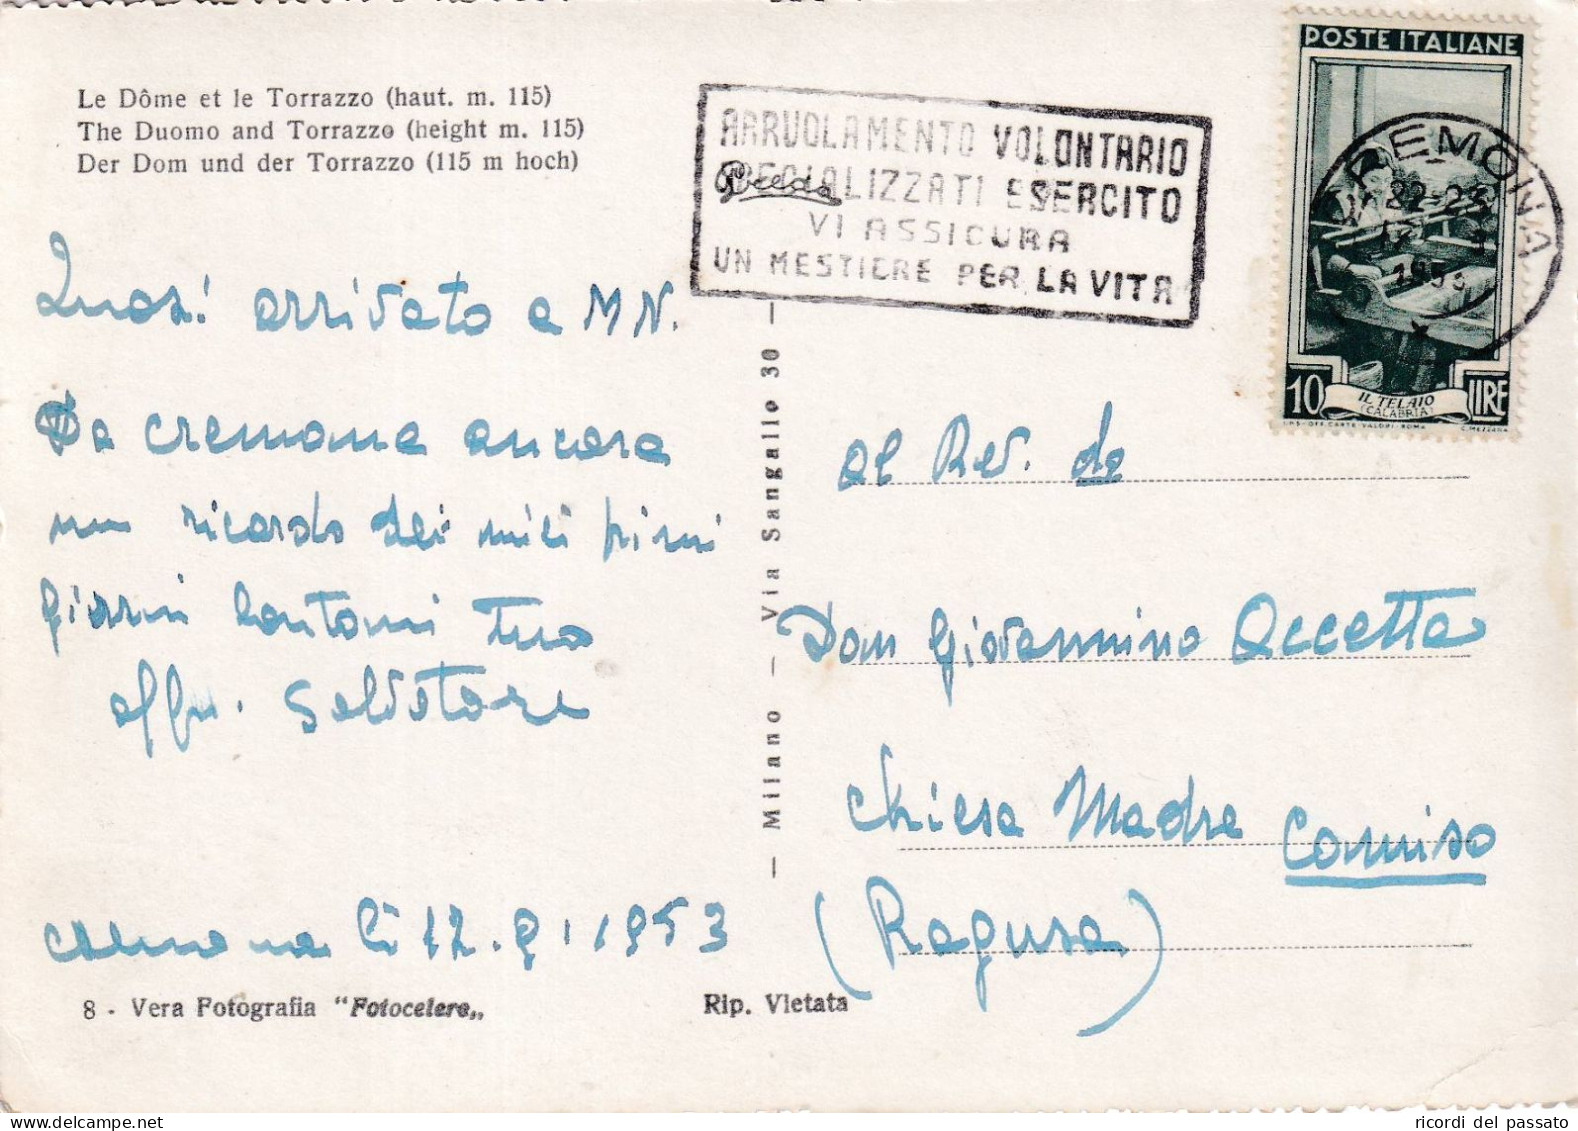 Le Dôme et le Torrazzo (haut. m. 115)
The Duomo and Torrazzo (height m. 115)
Der Dom und der Torrazzo (115 m hoch)
ARRUOLAMENTO VOLONTARIO
SPECIALIZZATI ESERCITO
VI ASSICURA
UN MESTIERE PER LA VITA
POSTE ITALIANE
CREMONA
22-23
1953
10 LIRE
IL TELAIO
(CALABRIA)
Quasi arrivato a MN.
Da cremona ancora
un ricordo dei miei primi
giorni lontani tuo
affmo. Salvatore
cremona lì 12.9.1953
8 - Vera Fotografia "Fotocelere„
Rip. Vietata
- Milano - Via Sangallo 30 -
al Rev. do
Don Giovannino Occetta
Chiesa Madre Comiso
(Ragusa)
ricordi del passato